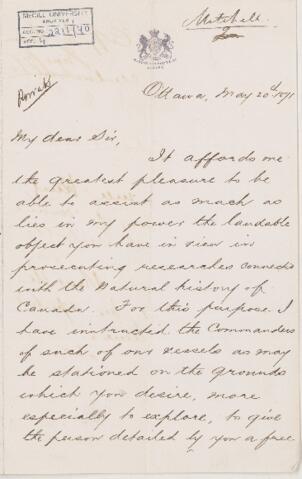 McGILL UNIVERSITY
ARCHIVES
ACC. NO.
REF.
Mitchell
Private
Ottawa, May 20th 1871
My dear Sir,
It affords me
the greatest pleasure to be
able to assist as much as
lies in my power the laudable
object you have in view in
prosecuting researches connected
with the Natural history of
Canada. For this purpose I
have instructed the Commanders
of such of our vessels as may
be stationed on the grounds
which you desire, more
especially to explore, to give
the person detailed by you a free